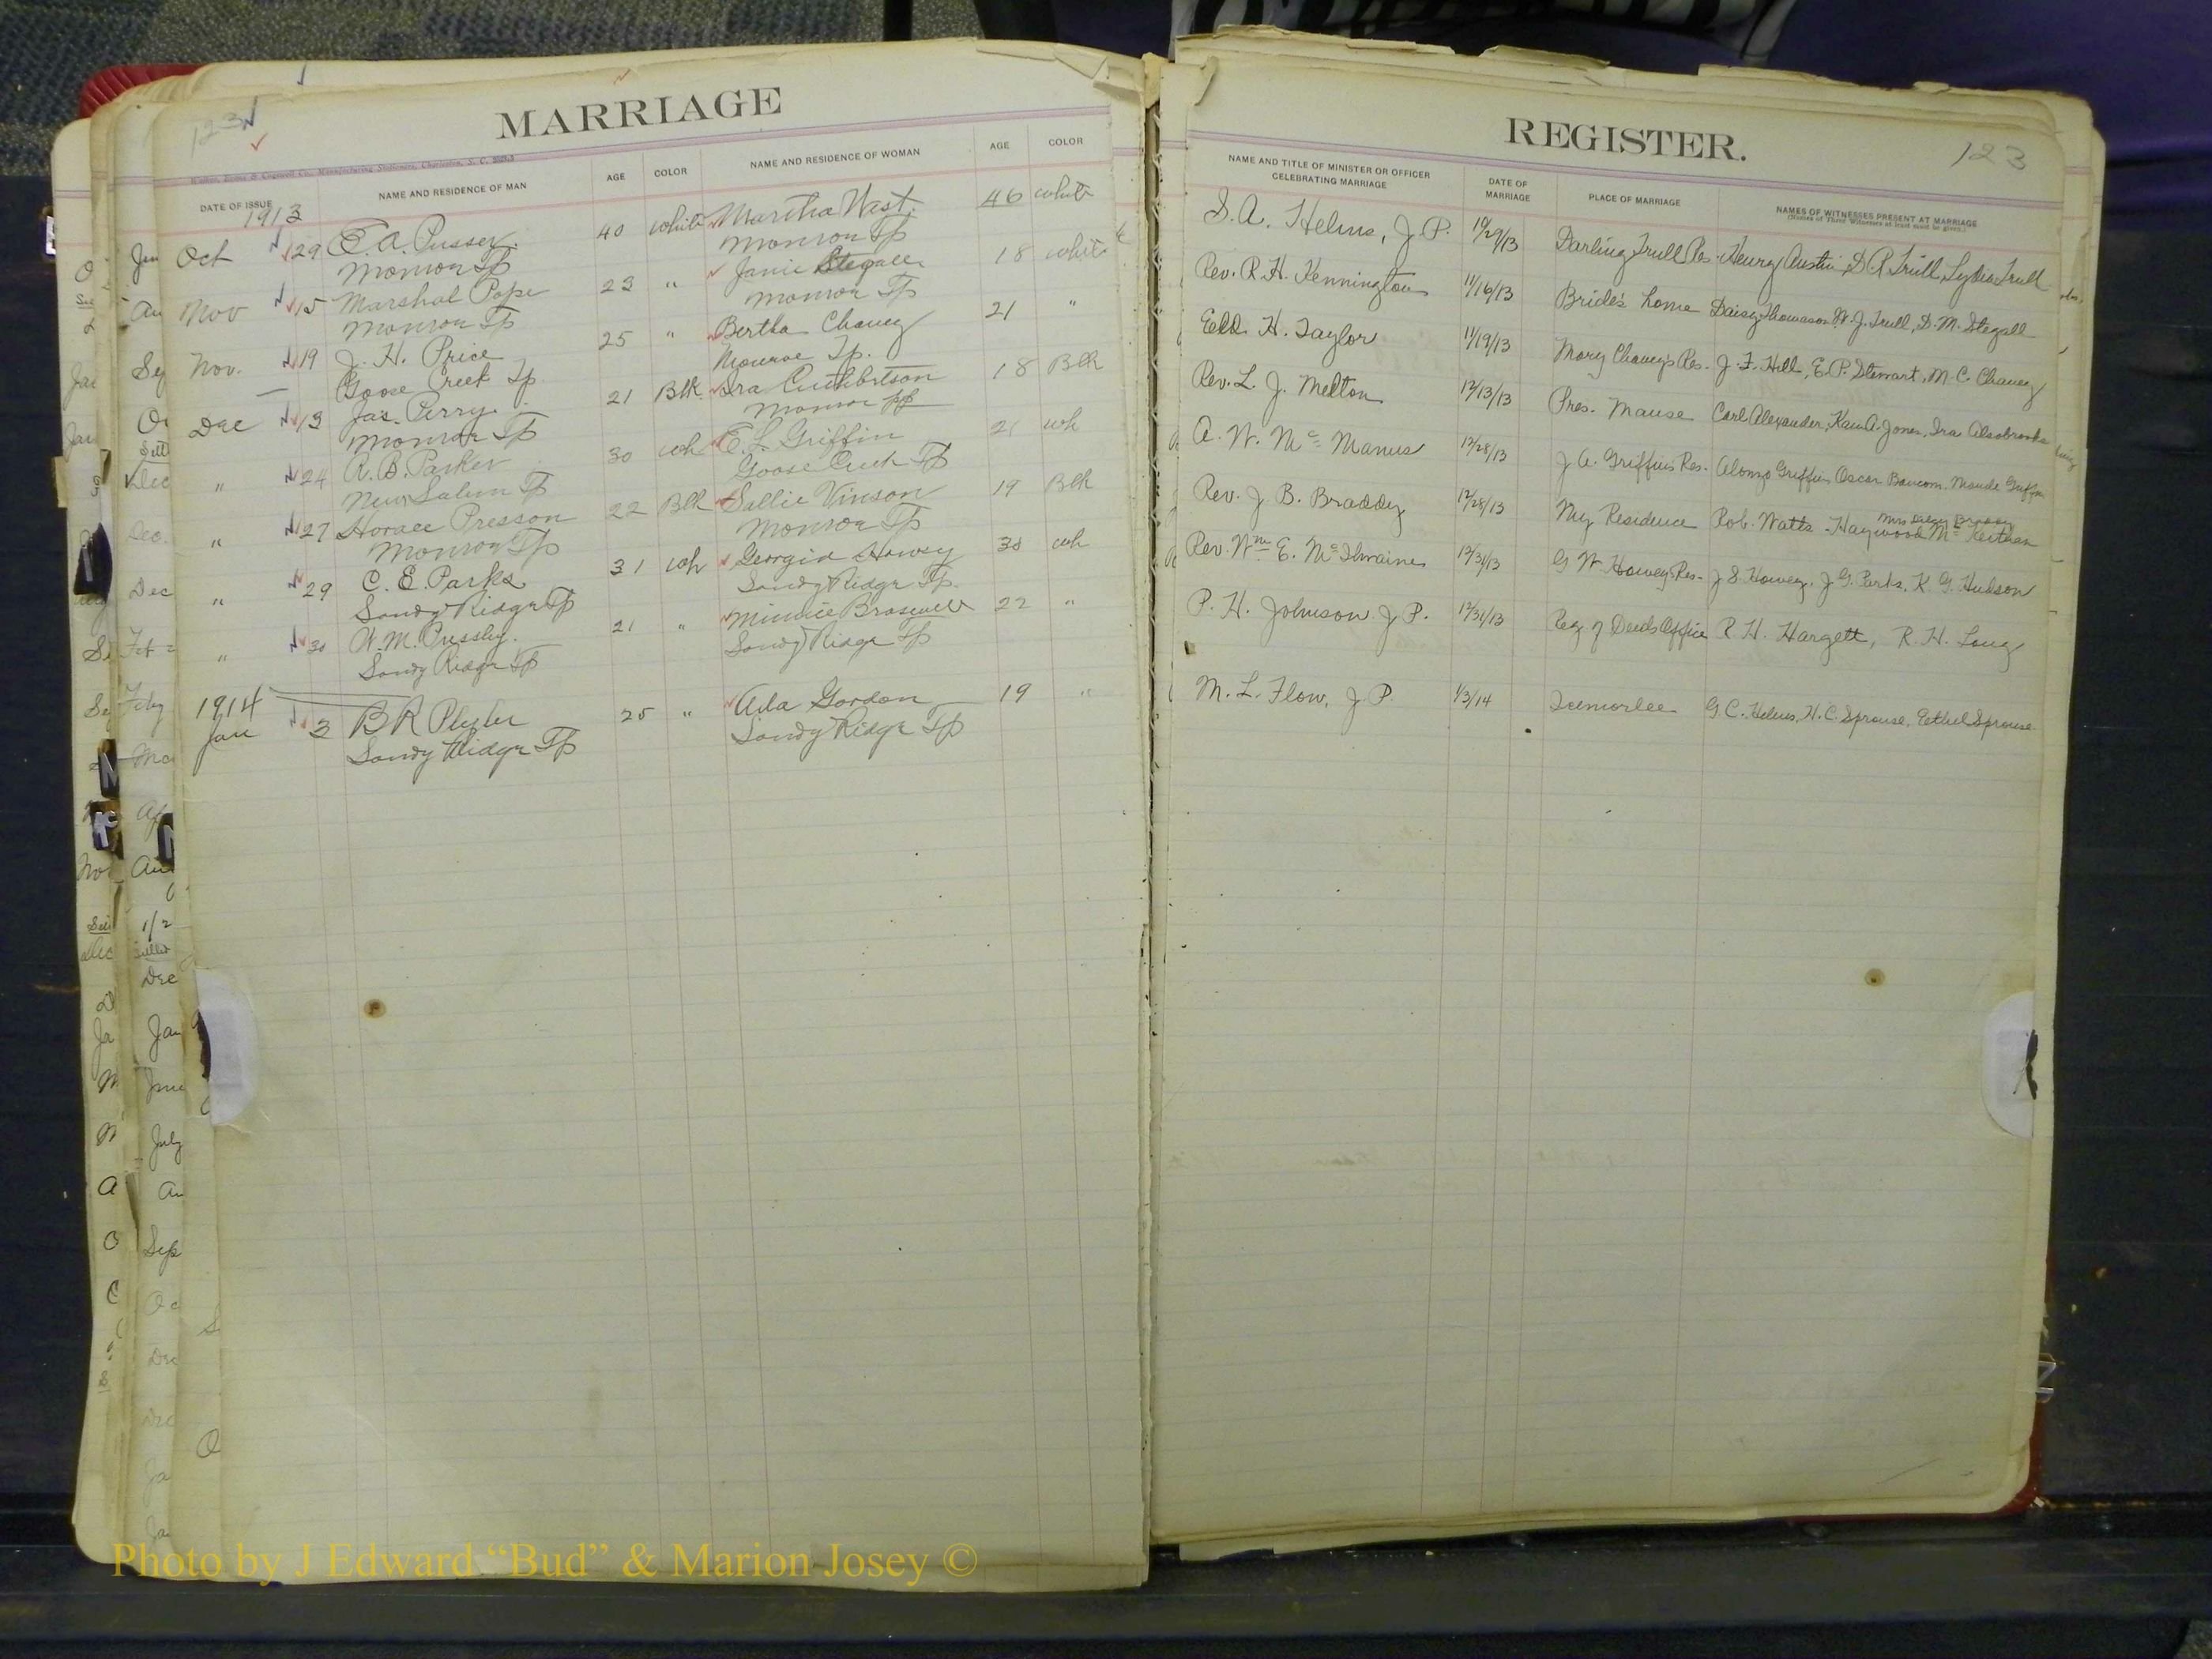 123
MARRIAGE
NAME AND RESIDENCE OF MAN
AGE
COLOR
NAME AND RESIDENCE OF WOMAN
AGE
COLOR
DATE OF ISSUE
1913
Oct 29 E. A. Pusser 40 white Martha West. 46 white
Monroe Tp Monroe Tp
Nov 15 Marshal Pope 23 " Janie Stegall 18 white
Monroe Tp Monroe Tp
Nov. 19 J. H. Price 25 " Bertha Chaney 21 "
Goose Creek Tp Monroe Tp.
Dec 13 Jas. Perry 21 Blk. Ira Cuthbertson 18 Blk
Monroe Tp Monroe Tp
" 24 R. B. Parker 30 wh E. L. Griffin 21 wh
New Salem Tp Goose Creek Tp
" 27 Horace Presson 22 Blk Sallie Vinson 19 Blk
Monroe Tp Monroe Tp
" 29 C. E. Parks 31 wh Georgia Howey 30 wh
Sandy Ridge Tp Sandy Ridge Tp.
" 30 W. M. Pressly. 21 " Minnie Braswell 22 "
Sandy Ridge Tp Sandy Ridge Tp
1914
Jan 3 B R Plyler 25 " Ada Gordon 19 "
Sandy Ridge Tp Sandy Ridge Tp
REGISTER.
123
NAME AND TITLE OF MINISTER OR OFFICER
CELEBRATING MARRIAGE
DATE OF
MARRIAGE
PLACE OF MARRIAGE
NAMES OF WITNESSES PRESENT AT MARRIAGE
(Names of Three Witnesses at least must be given.)
S. A. Helms, J. P. 10/29/13 Darling Trull Res- Henry Austin, D R Trull, Lydia Trull
Rev. R. H. Kennington 11/16/13 Bride's home Daisy Thomason, W. J. Trull, D. M. Stegall
Eld. H. Taylor 11/19/13 Mary Chaney's Res- J. F. Hill, E. P. Stewart, M. C. Chaney
Rev. L. J. Melton 12/13/13 Pres. Manse Carl Alexander, A. Jones, Ira Alsobrooks
A. W. McManus 12/28/13 J A. Griffin's Res- Alonzo Griffin, Oscar Baucom, Maude Griffin
Rev. J. B. Braddy 12/28/13 My Residence Rob. Watts - Haywood
Rev. Wm E. McIlwaine 12/31/13 G W Howey Res- J S. Howey, J G. Parks, K. G. Hudson
P. H. Johnson J P. 12/31/13 Reg. of Deeds Office R H. Hargett, R. H. Long
M. L. Flow, J P. 1/3/14 Icemorlee G C. Helms, H. C. Sprouse, Eethel Sprouse
Photo by J Edward “Bud” & Marion Josey ©